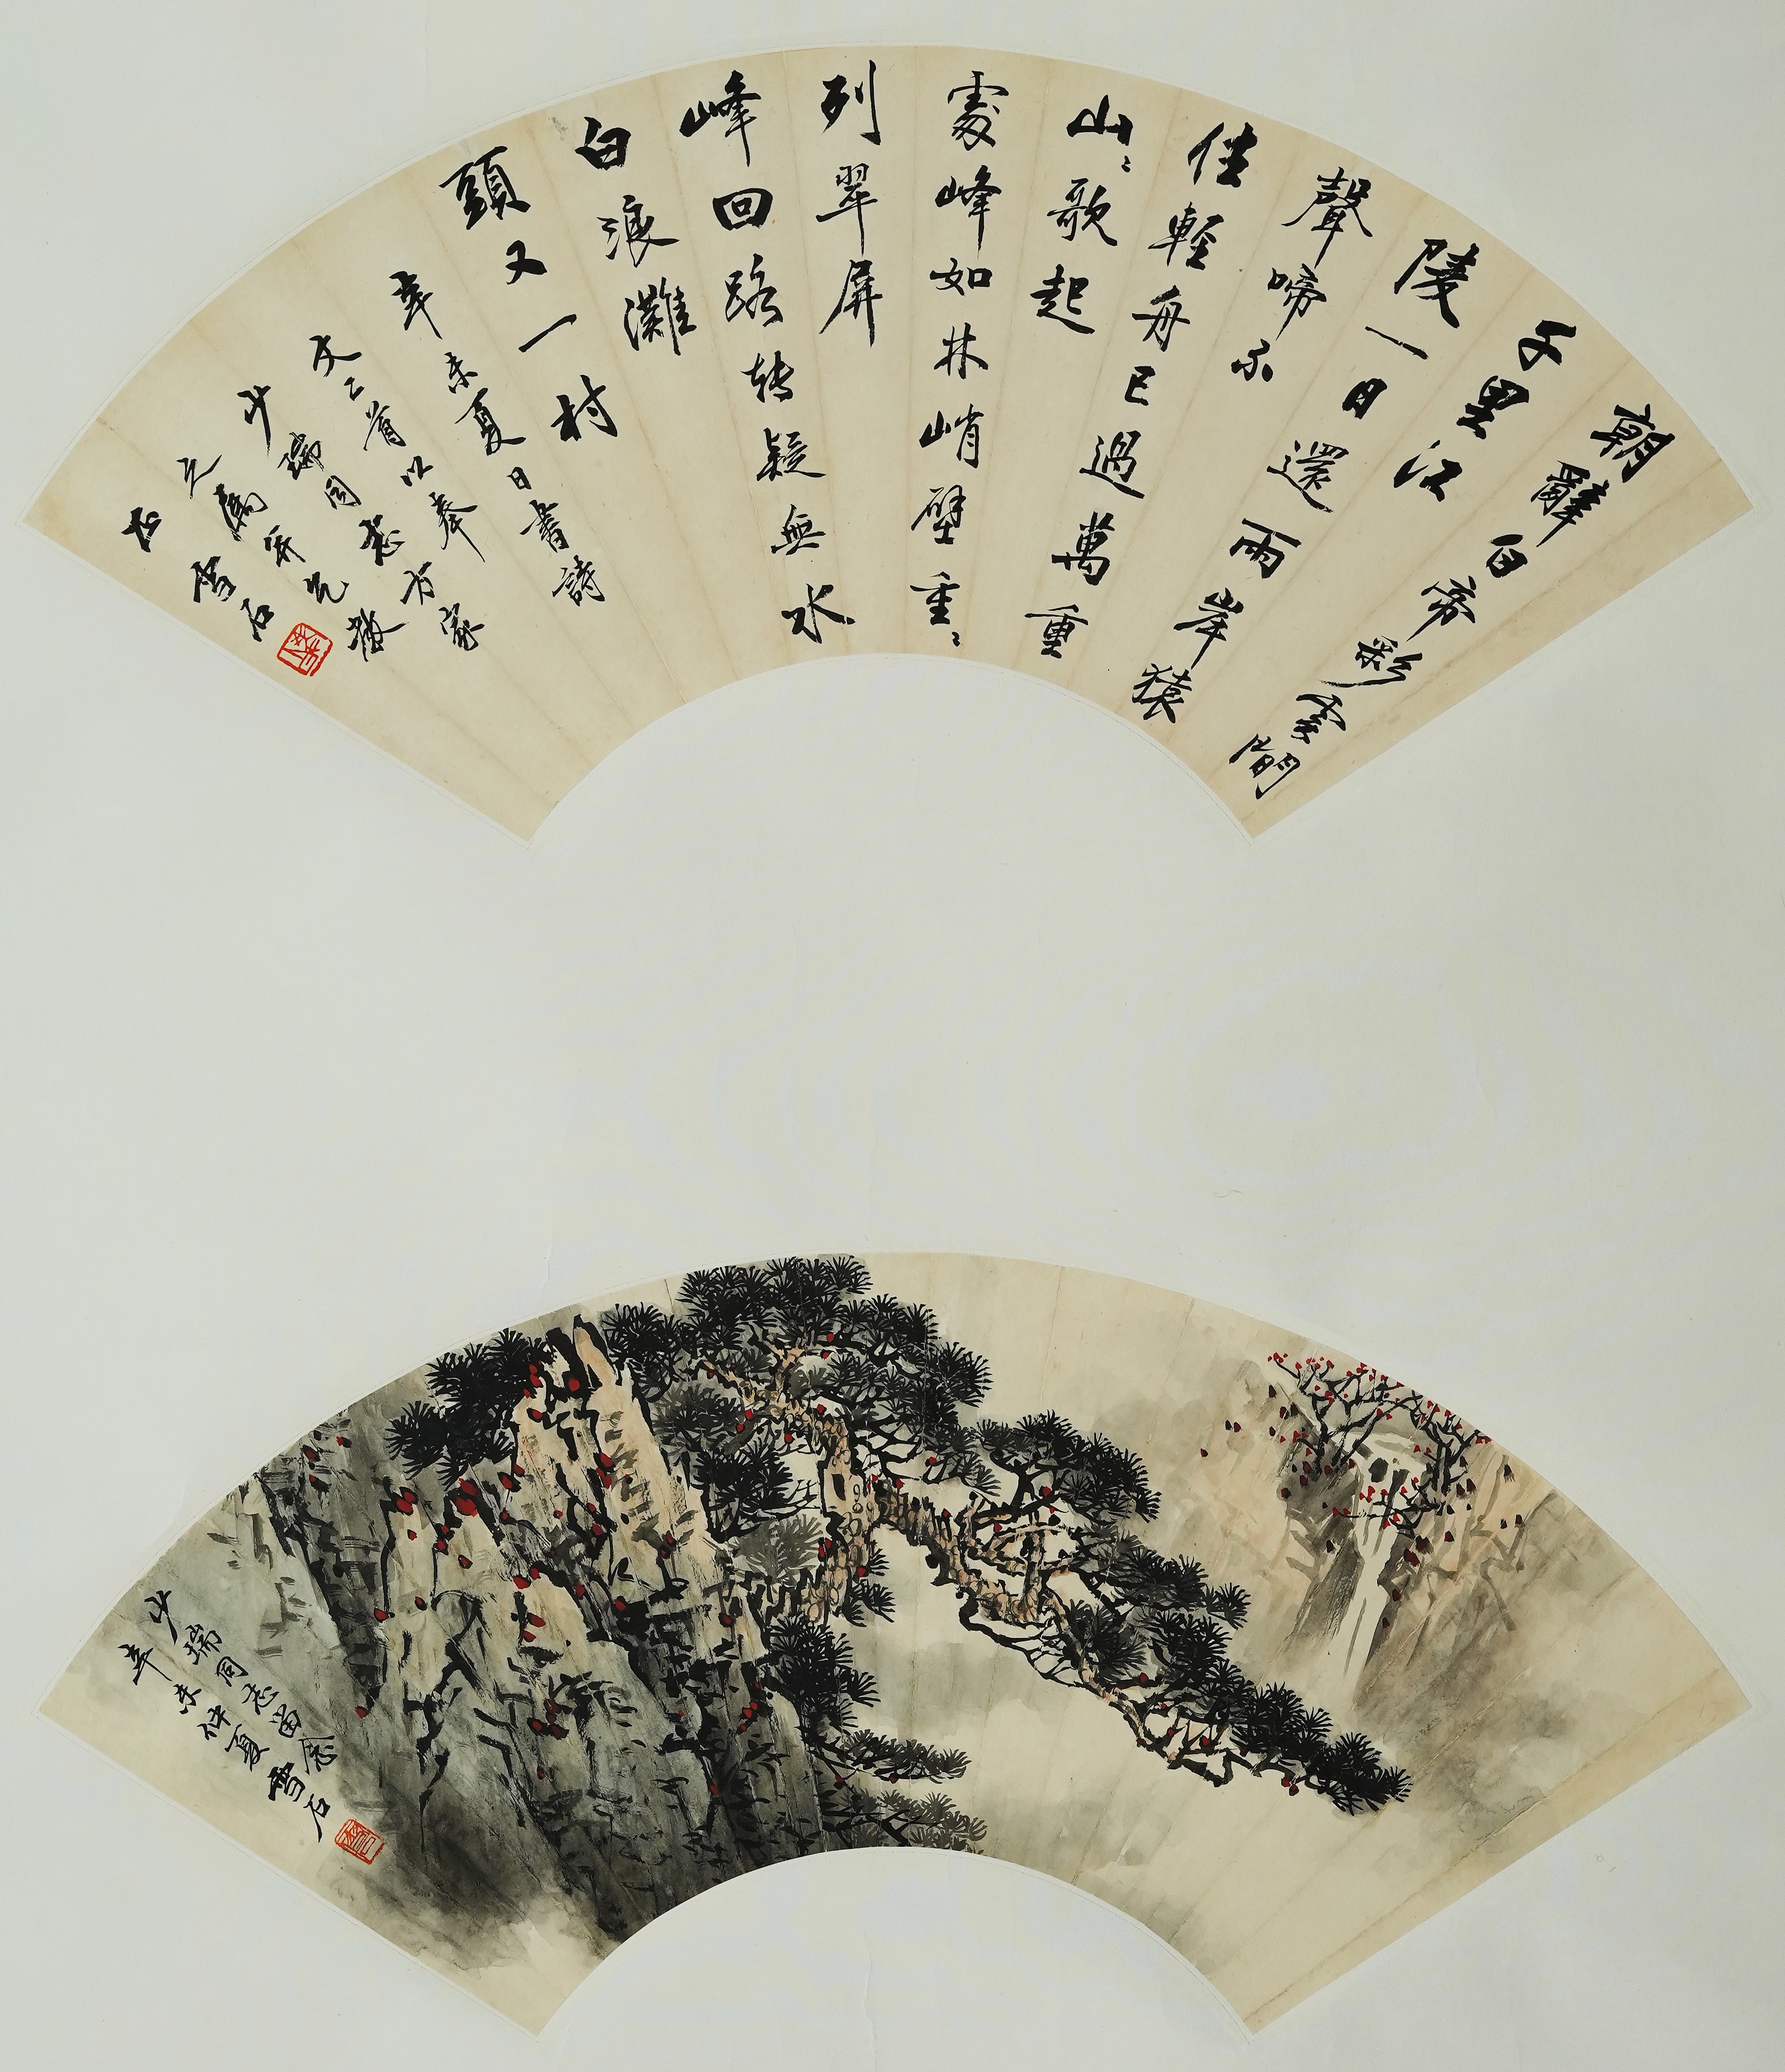 朝辭白帝彩雲間
千里江
陵一日還兩岸猿
聲啼不
住輕舟已過萬重
山〻歌起
處峰如林峭壁重〻
列翠屏
峰回路转疑無水
白浪灘
頭又一村
辛未夏日書詩
文二首以奉
少瑞同志方家
之屬并乞教
正 雪石
少瑞同志留念
辛未仲夏雪石